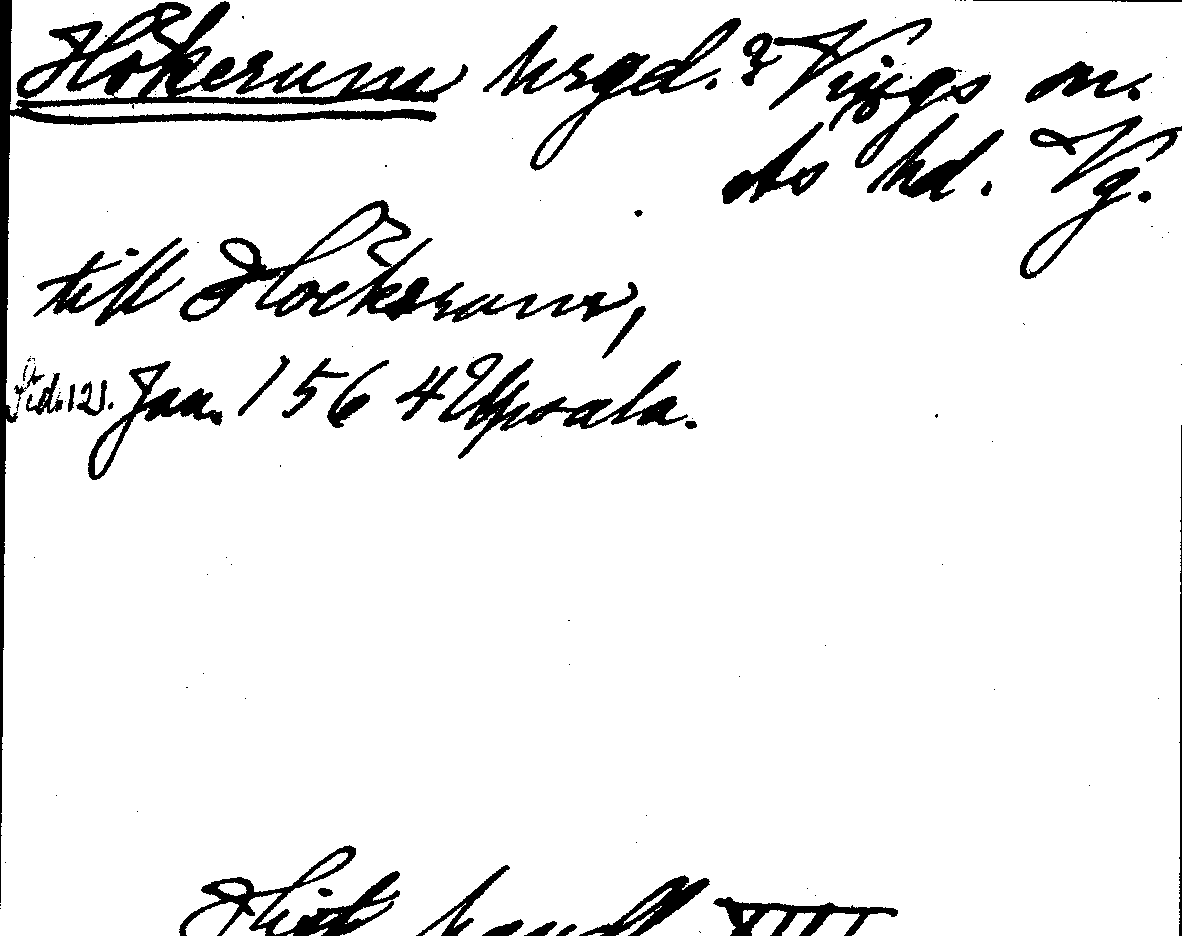 Hökerum hrgd. ? Vings sn.
Ås hd. Vg.
till Höckerum,
Sid. 121. Jan. 1564 Upsala.
Hist handl XIII